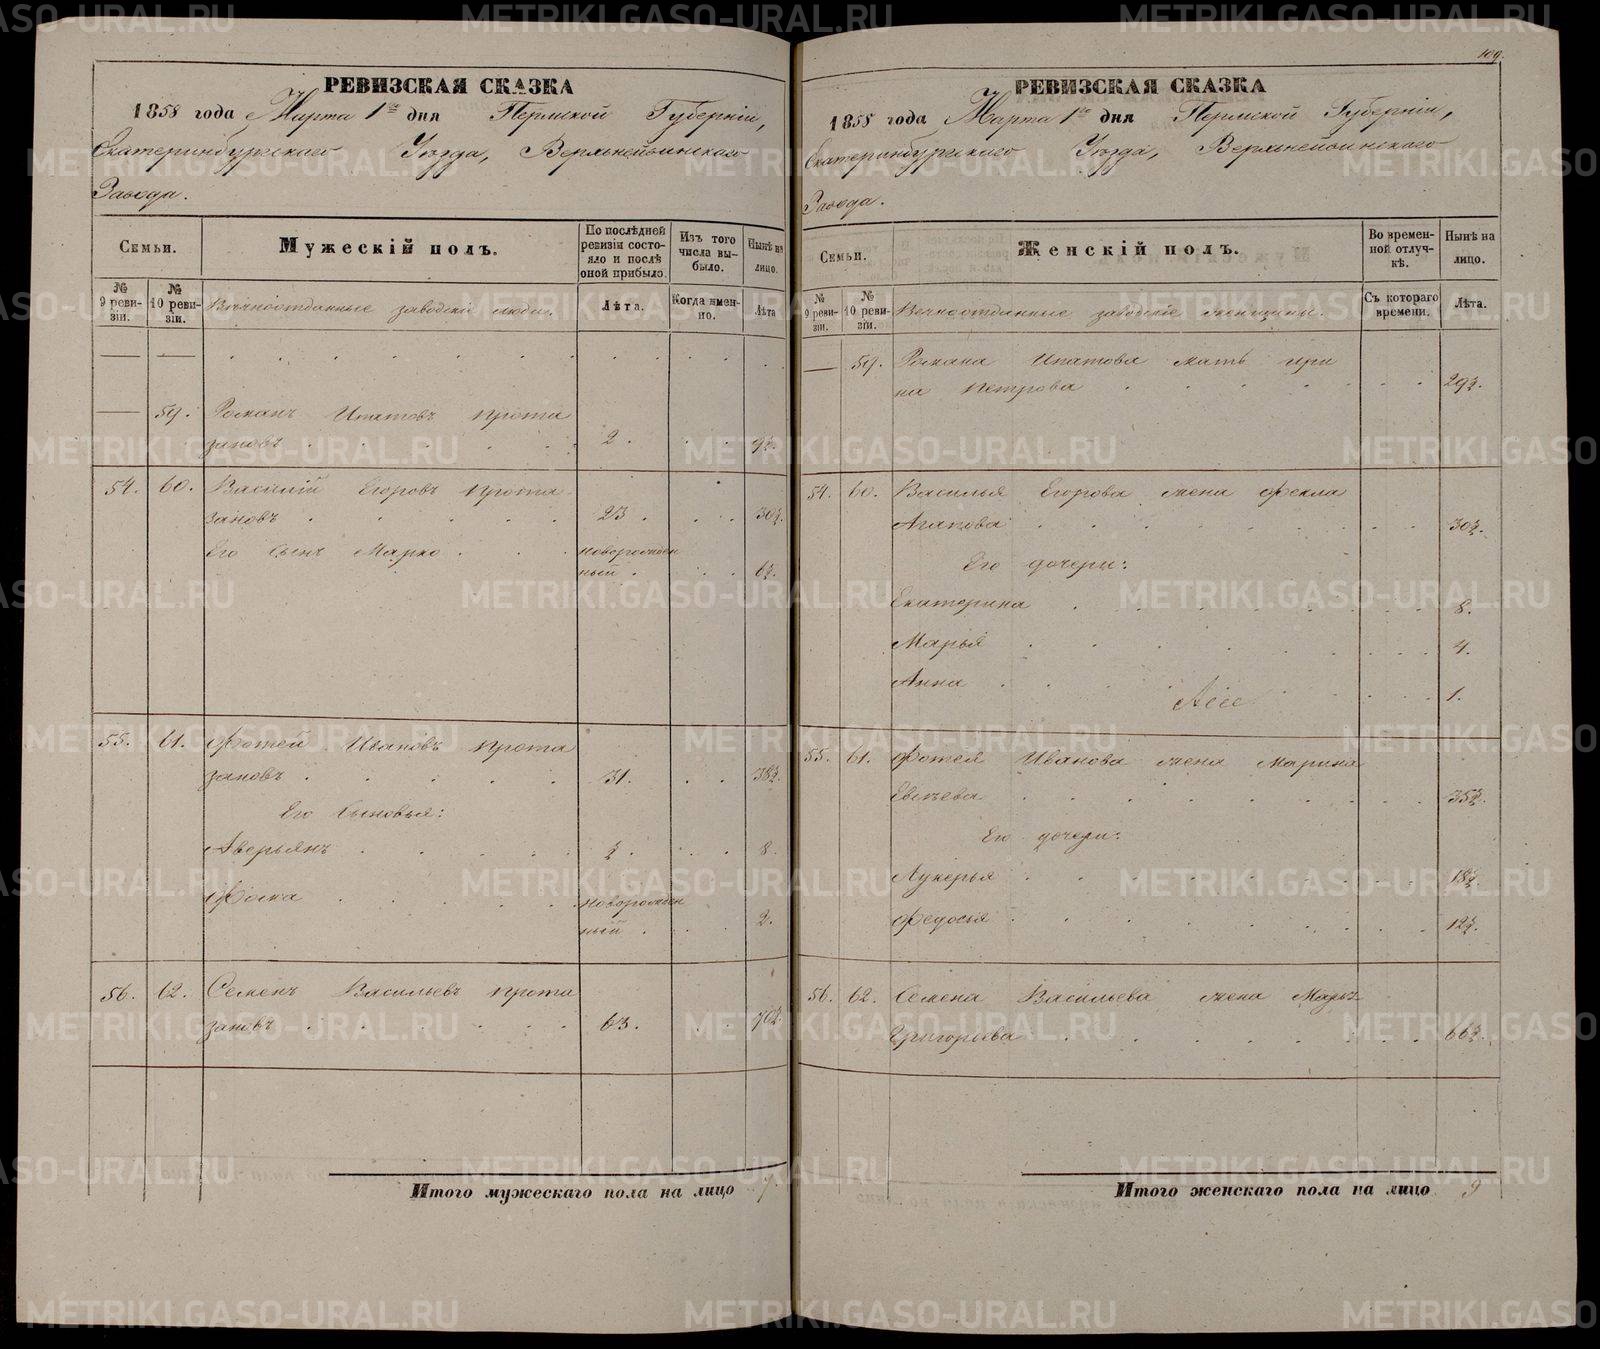 РЕВИЗСКАЯ СКАЗКА
1858 года Марта 1го дня Пермской Губерніи,
Екатеринбургскаго Уѣзда, Верхнейвинскаго
Завода.
Семьи.
Мужескій полъ.
По послѣдней ревизіи состояло и послѣ оной прибыло.
Изъ того числа выбыло.
Нынѣ на лицо.
№ 9 ревизіи.
№ 10 ревизіи.
Вѣчноотданные заводскіе люди.
Лѣта.
Когда именно.
Лѣта
59. Романъ Ипатовъ Прота
зановъ 2. 9½.
54. 60. Василій Егоровъ Прота
зановъ 23. 30½.
Его сынъ Марко новорожден
ный. 6½.
55. 61. Фотей Ивановъ Прота
зановъ 31. 38½.
Его сыновья:
Аверьянъ ½. 8.
Фока новорожден
ный. 2.
56. 62. Семенъ Васильевъ Прота
зановъ 63. 70½.
Итого мужескаго пола на лицо 7
109.
РЕВИЗСКАЯ СКАЗКА
1858 года Марта 1го дня Пермской Губерніи,
Екатеринбургскаго Уѣзда, Верхнейвинскаго
Завода.
Семьи.
Женскій полъ.
Во временной отлучкѣ.
Нынѣ на лицо.
№ 9 ревизіи.
№ 10 ревизіи.
Вечноотданные заводскіе женщины.
Съ котораго времени.
Лѣта.
59. Романа Ипатова мать Ири
на Петрова 29½.
54. 60. Василья Егорова жена Фекла
Агапова 30½.
Его дочери:
Екатерина 8.
Марья 4.
Анна 1.
55. 61. Фотея Иванова жена Марина
Евсѣева 35½.
Его дочери:
Лукерья 18½.
Федосья 12½.
56. 62. Семена Васильева жена Марья
Григорьева 66½.
Итого женскаго пола на лицо 9
METRIKI.GASO-URAL.RU